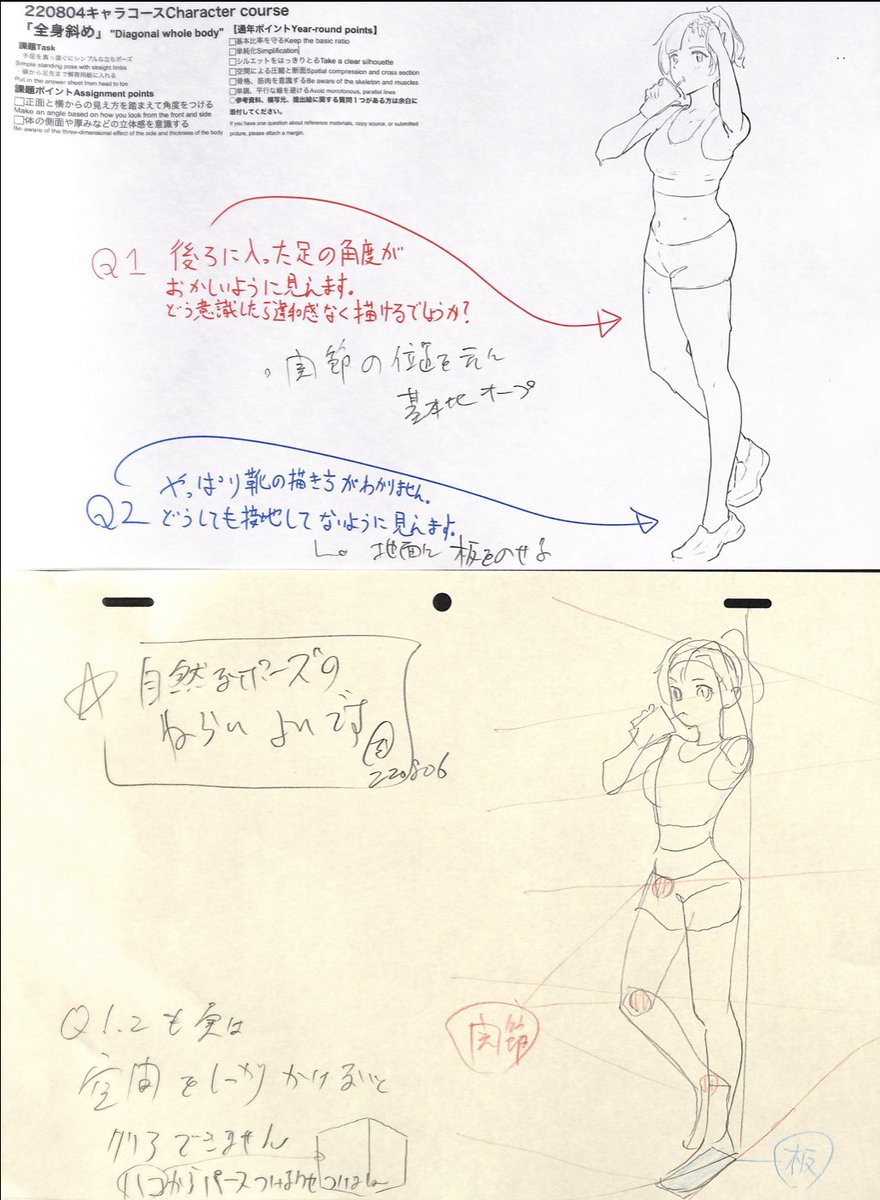 220804キャラコースCharacter course
「全身斜め」"Diagonal whole body"
課題Task
手足を真っ直ぐにシンプルな立ちポーズ
Simple standing pose with straight limbs
頭から足先まで解答用紙に入れる
Put in the answer sheet from head to toe
課題ポイントAssignment points
□正面と横からの見え方を踏まえて角度をつける
Make an angle based on how you look from the front and side
□体の側面や厚みなどの立体感を意識する
Be aware of the three-dimensional effect of the side and thickness of the body
【通年ポイントYear-round points】
□基本比率を守るKeep the basic ratio
□単純化Simplification
□シルエットをはっきりとるTake a clear silhouette
□空間による圧縮と断面Spatial compression and cross section
□骨格、筋肉を意識するBe aware of the skeleton and muscles
□単調、平行な線を避けるAvoid monotonous, parallel lines
○参考資料、模写元、提出絵に関する質問1つがある方は余白に
添付してください。
If you have one question about reference materials, copy source, or submitted
picture, please attach a margin.
Q1 後ろに入った足の角度が
おかしいように見えます。
どう意識したら違和感なく描けるでしょうか?
関節の位置を元に
基本はオープ
Q2 やっぱり靴の描き方がわかりません。
どうしても接地してないように見えます。
地面に板をのせる
☆ 自然なポーズの
ねらい よいです
220806
関節
Q1.2も実は
空間をしっかりかけないと
クリアできません
ハコからパースつける
板